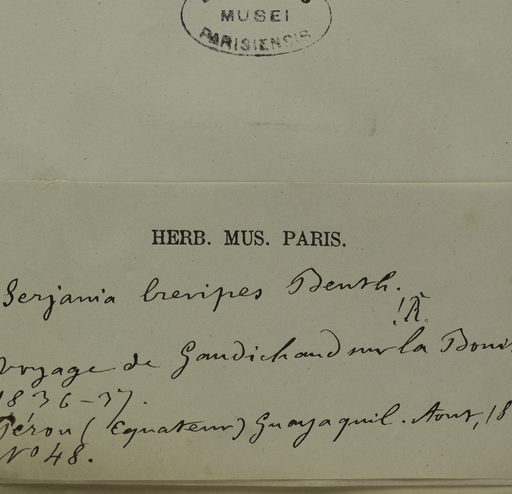 MUSEI
PARISIENSIS
HERB. MUS. PARIS.
Serjania brevipes Benth.
!R.
Voyage de Gaudichaud sur la Boni
1836-37.
Pérou (Equateur) Guayaquil. Aout, 18
No 48.